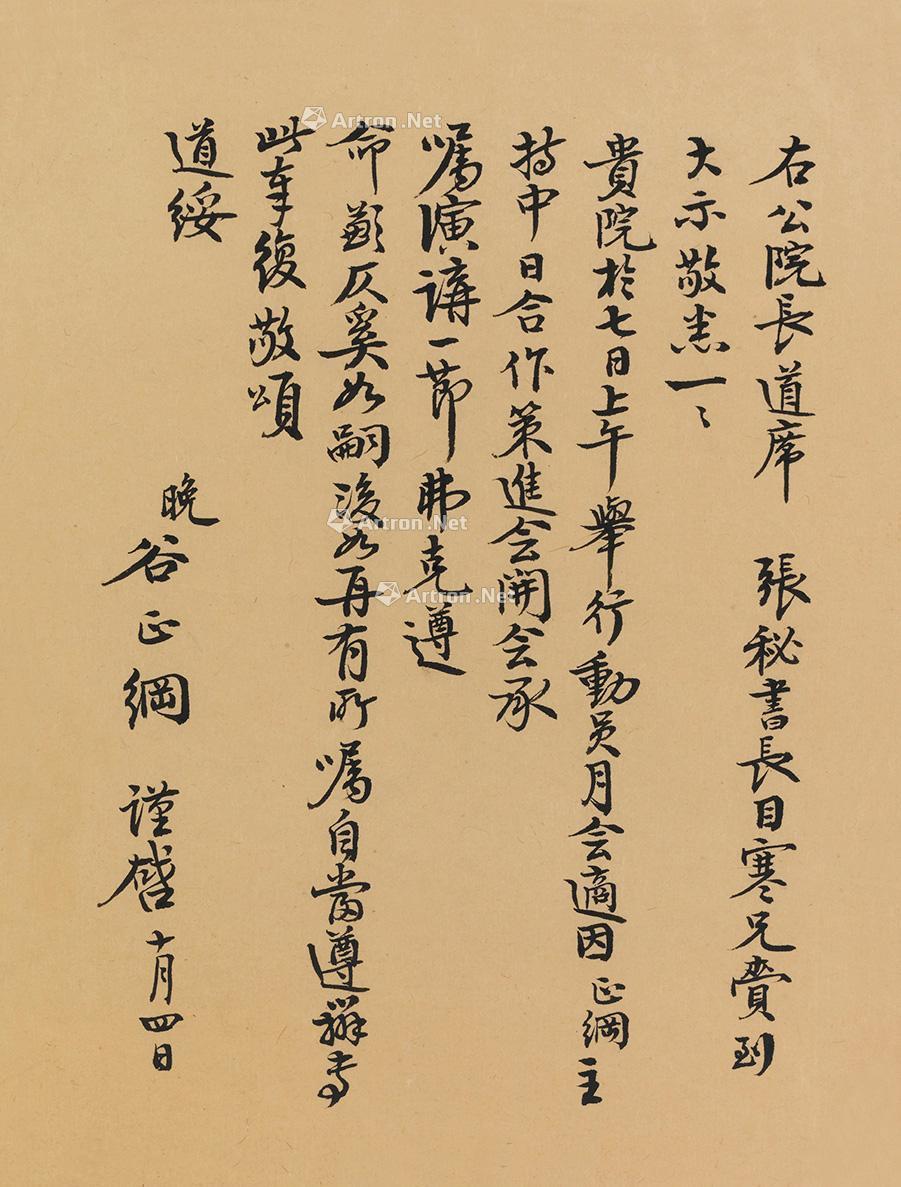 右公院長道席 張秘書長目寒兄賷到
大示敬悉一〻
貴院於七日上午舉行動員月会適因正綱主
持中日合作策進会開会承
囑演講一節弗克遵
命歉仄奚如嗣後如再有所囑自當遵辦專
此奉復敬頌
道綏
晚谷正綱 謹啓 十月四日
Artron.Net
Artron.Net
Artron.Net